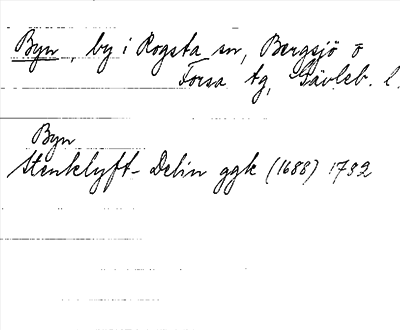 Byn, by i Rogsta sn, Bergsjö o
Forsa tg, Gävleb. l.
Byn
Stenklyft- Delin ggk (1688) 1732